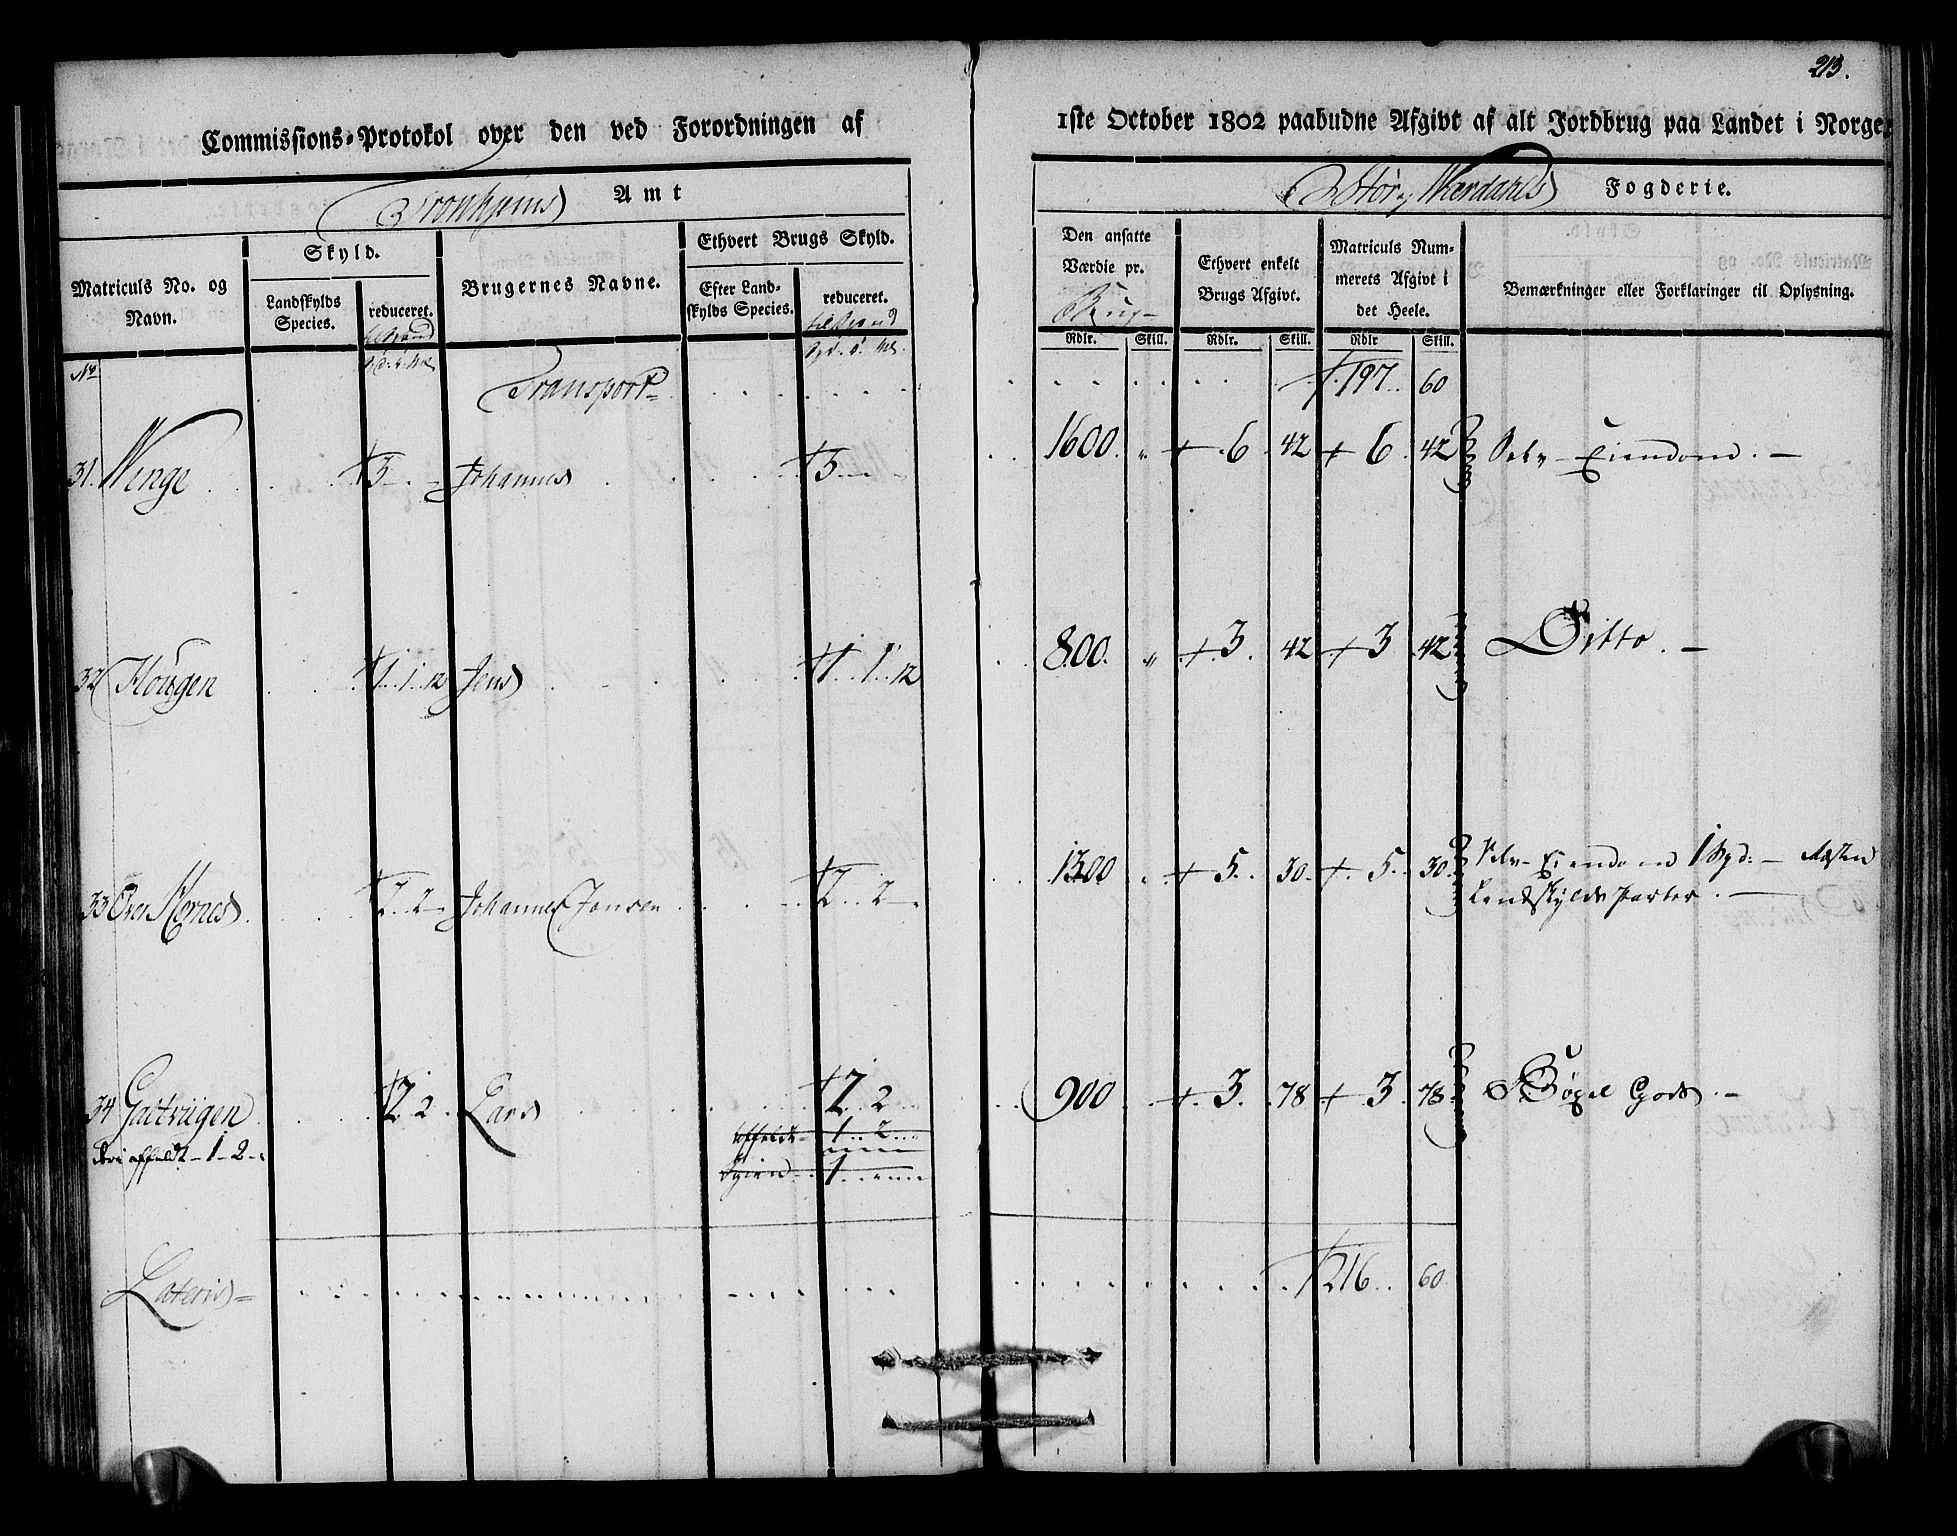 213.
Commissions-Protokol over den ved Forordningen af 1ste October 1802 paabudne Afgivt af alt Jordbrug paa Landet i Norge.
Tronhjems Amt
Stør- Værdahls Fogderie.
Matriculs No. og Navn.
Skyld.
Landskylds Species.
reduceret.
Brugernes Navne.
Ethvert Brugs Skyld.
Efter Landskylds Species.
reduceret.
Den ansatte Værdie pr. Brug-
Ethvert enkelt Brugs Afgivt.
Matriculs Nummerets Afgivt i det Heele.
Bemærkninger eller Forklaringer til Oplysning.
Rdlr. Skill. Rdlr. Skill. Rdlr Skill.
No
Transport 197 60
31. Wenge 3 - - Johannes 3 - - 1600 " 6 42 6 42 Selv-Eiendom. -
32 Hougen 1 1 12 Jens 1 1 12 800 " 3 42 3 42 Ditto. -
33 Over Hornes 2 2 - Johannes Jonsen 2 2 - 1300 5 30 5 30 Selv-Eiendom 1 Spd: -
Landskylds Parter. -
34 2 2 Lars 2 2 900 3 78 3 78 Gods. -
affeldt - 1 - 2 -
affeldt - 1 .. 2
igien 1
Lateris 216 60